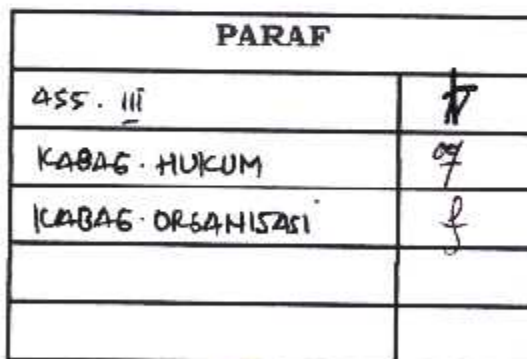 PARAF
ASS. III
KABAG. HUKUM
KABAG. ORGANISASI